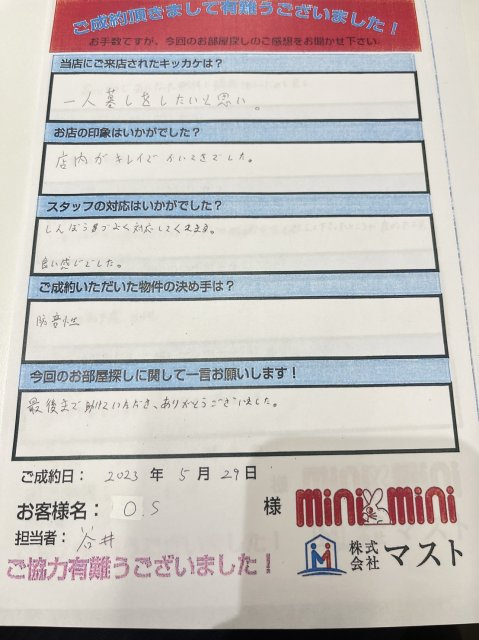 ご成約頂きまして有難うございました！
お手数ですが、今回のお部屋探しのご感想をお聞かせ下さい
当店にご来店されたキッカケは？
一人暮しをしたいと思い。
お店の印象はいかがでした？
店内がキレイで かいてきでした。
スタッフの対応はいかがでした？
しんぼう強く 対応してくれます。
良い感じでした。
ご成約いただいた物件の決め手は？
防音性
今回のお部屋探しに関して一言お願いします！
最後まで助けていただき、ありがとうございました。
ご成約日： 2023 年 5 月 29 日
お客様名： O.S 様
mini mini
担当者： 谷井
株式会社 マスト
ご協力有難うございました！